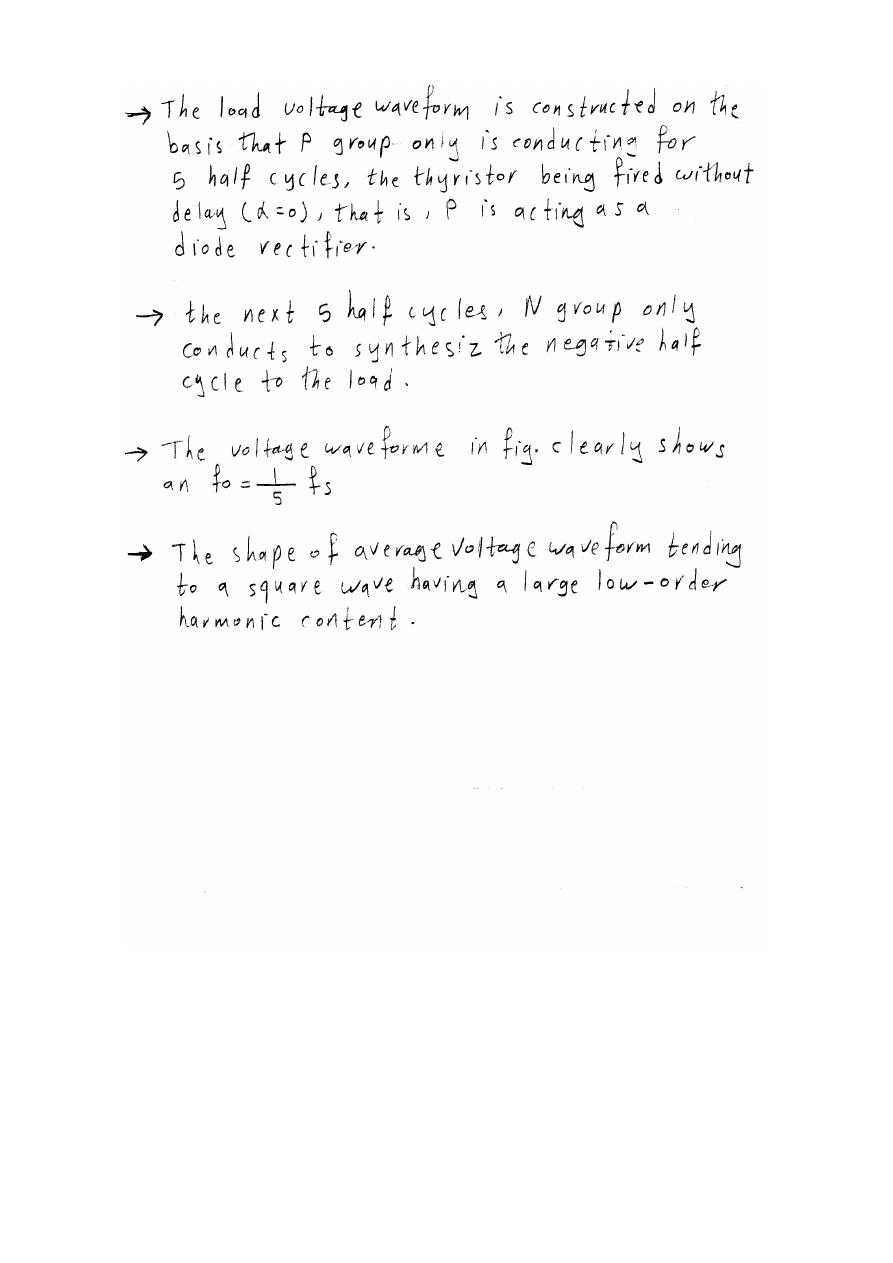 → The load voltage waveform is constructed on the
basis that P group only is conducting for
5 half cycles, the thyristor being fired without
delay (α=0), that is, P is acting as a
diode rectifier.
→ the next 5 half cycles, N group only
conducts to synthesiz the negative half
cycle to the load.
→ The voltage waveforme in fig. clearly shows
an fo = 1/5 fs
→ The shape of average voltage waveform tending
to a square wave having a large low-order
harmonic content.